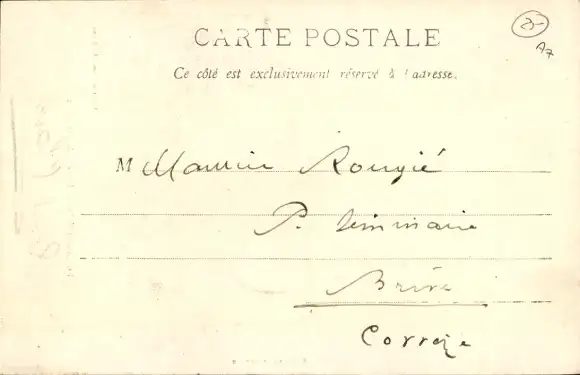 CARTE POSTALE
25
A7
Ce côté est exclusivement réservé à l'adresse.
M Maurice Rougié
P. Seminaire
Brive
Corrèze